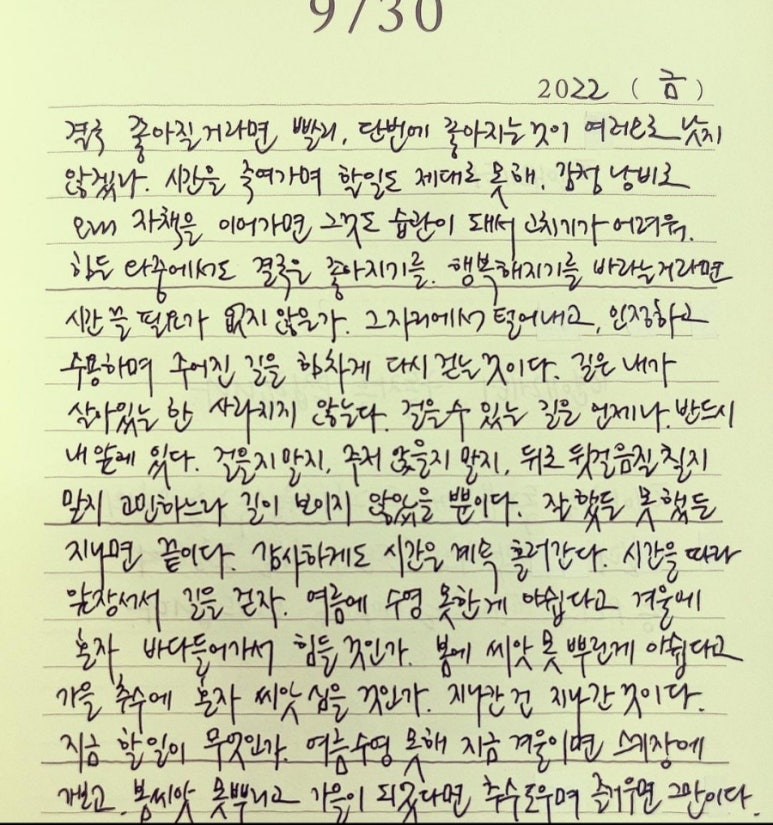 9/30
2022 (금)
결국 좋아질거라면 빨리, 단번에 좋아지는것이 여러모로 낫지
않겠나. 시간을 죽여가며 할일도 제대로 못해, 감정 낭비로
오래 자책을 이어가면 그것도 습관이 돼서 고치기가 어려워.
힘든 와중에서도 결국은 좋아지기를. 행복해지기를 바라는거라면
시간 끌 필요가 없지 않을까. 그자리에서 털어내고, 인정하고
수용하며 주어진 길을 힘차게 다시 걷는것이다. 길은 내가
살아있는 한 사라지지 않는다. 걸을수 있는 길은 언제나. 반드시
내 앞에 있다. 걸을지 말지, 주저 앉을지 말지, 뒤로 뒷걸음질 칠지
말지 고민하느라 길이 보이지 않았을 뿐이다. 잘 했든 못했든
지나면 끝이다. 감사하게도 시간은 계속 흘러간다. 시간을 따라
앞장서서 길을 걷자. 여름에 수영 못한게 아쉽다고 겨울에
혼자 바다들어가서 힘들 것인가. 봄에 씨앗 못 뿌린게 아쉽다고
가을 추수에 혼자 씨앗 심을 것인가. 지나간 건 지나간 것이다.
지금 할 일이 무엇인가. 여름수영 못해 지금 겨울이면 스키장에
가보고. 봄씨앗 못뿌리고 가을이 되었다면 추수도우며 즐거우면 그만이다.